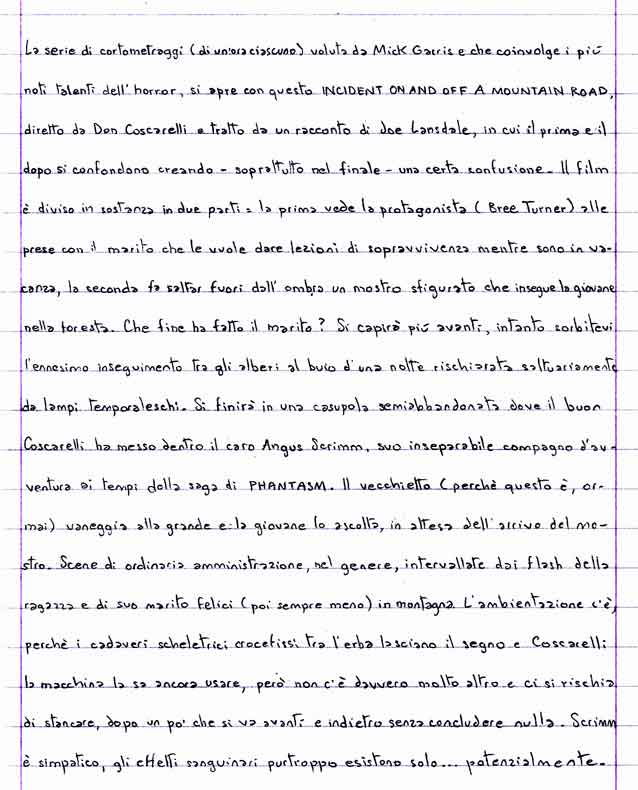 La serie di cortometraggi (di un'ora ciascuno) voluta da Mick Garris e che coinvolge i più
noti talenti dell'horror, si apre con questo INCIDENT ON AND OFF A MOUNTAIN ROAD,
diretto da Don Coscarelli e tratto da un racconto di Joe Lansdale, in cui il prima e il
dopo si confondono creando - soprattutto nel finale - una certa confusione. Il film
è diviso in sostanza in due parti: la prima vede la protagonista (Bree Turner) alle
prese con il marito che le vuole dare lezioni di sopravvivenza mentre sono in va-
canza, la seconda fa saltar fuori dall'ombra un mostro sfigurato che insegue la giovane
nella foresta. Che fine ha fatto il marito? Si capirà più avanti, intanto sorbitevi
l'ennesimo inseguimento tra gli alberi al buio d'una notte rischiarata saltuariamente
da lampi temporaleschi. Si finirà in una casupola semiabbandonata dove il buon
Coscarelli ha messo dentro il caro Angus Scrimm, suo inseparabile compagno d'av-
ventura ai tempi della saga di PHANTASM. Il vecchietto (perchè questo è, or-
mai) vaneggia alla grande e la giovane lo ascolta, in attesa dell'arrivo del mo-
stro. Scene di ordinaria amministrazione, nel genere, intervallate dai flash della
ragazza e di suo marito felici (poi sempre meno) in montagna. L'ambientazione c'è,
perchè i cadaveri scheletrici crocefissi tra l'erba lasciano il segno e Coscarelli
la macchina la sa ancora usare, però non c'è davvero molto altro e ci si rischia
di stancare, dopo un po' che si va avanti e indietro senza concludere nulla. Scrimm
è simpatico, gli effetti sanguinari purtroppo esistono solo... potenzialmente.